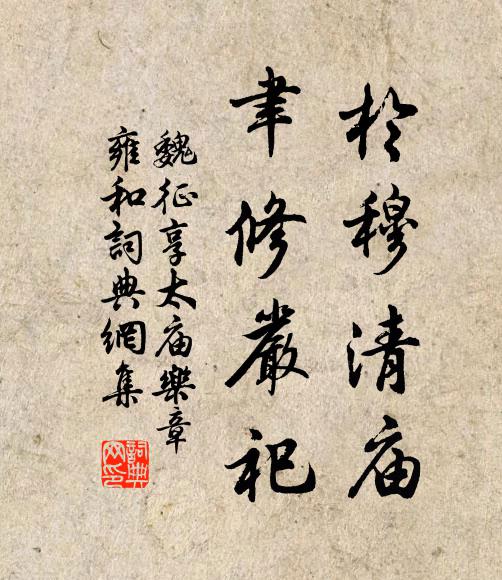 於穆清庙
聿修嚴祀
魏征享太庙樂章
雍和詞典網集
詞典網印